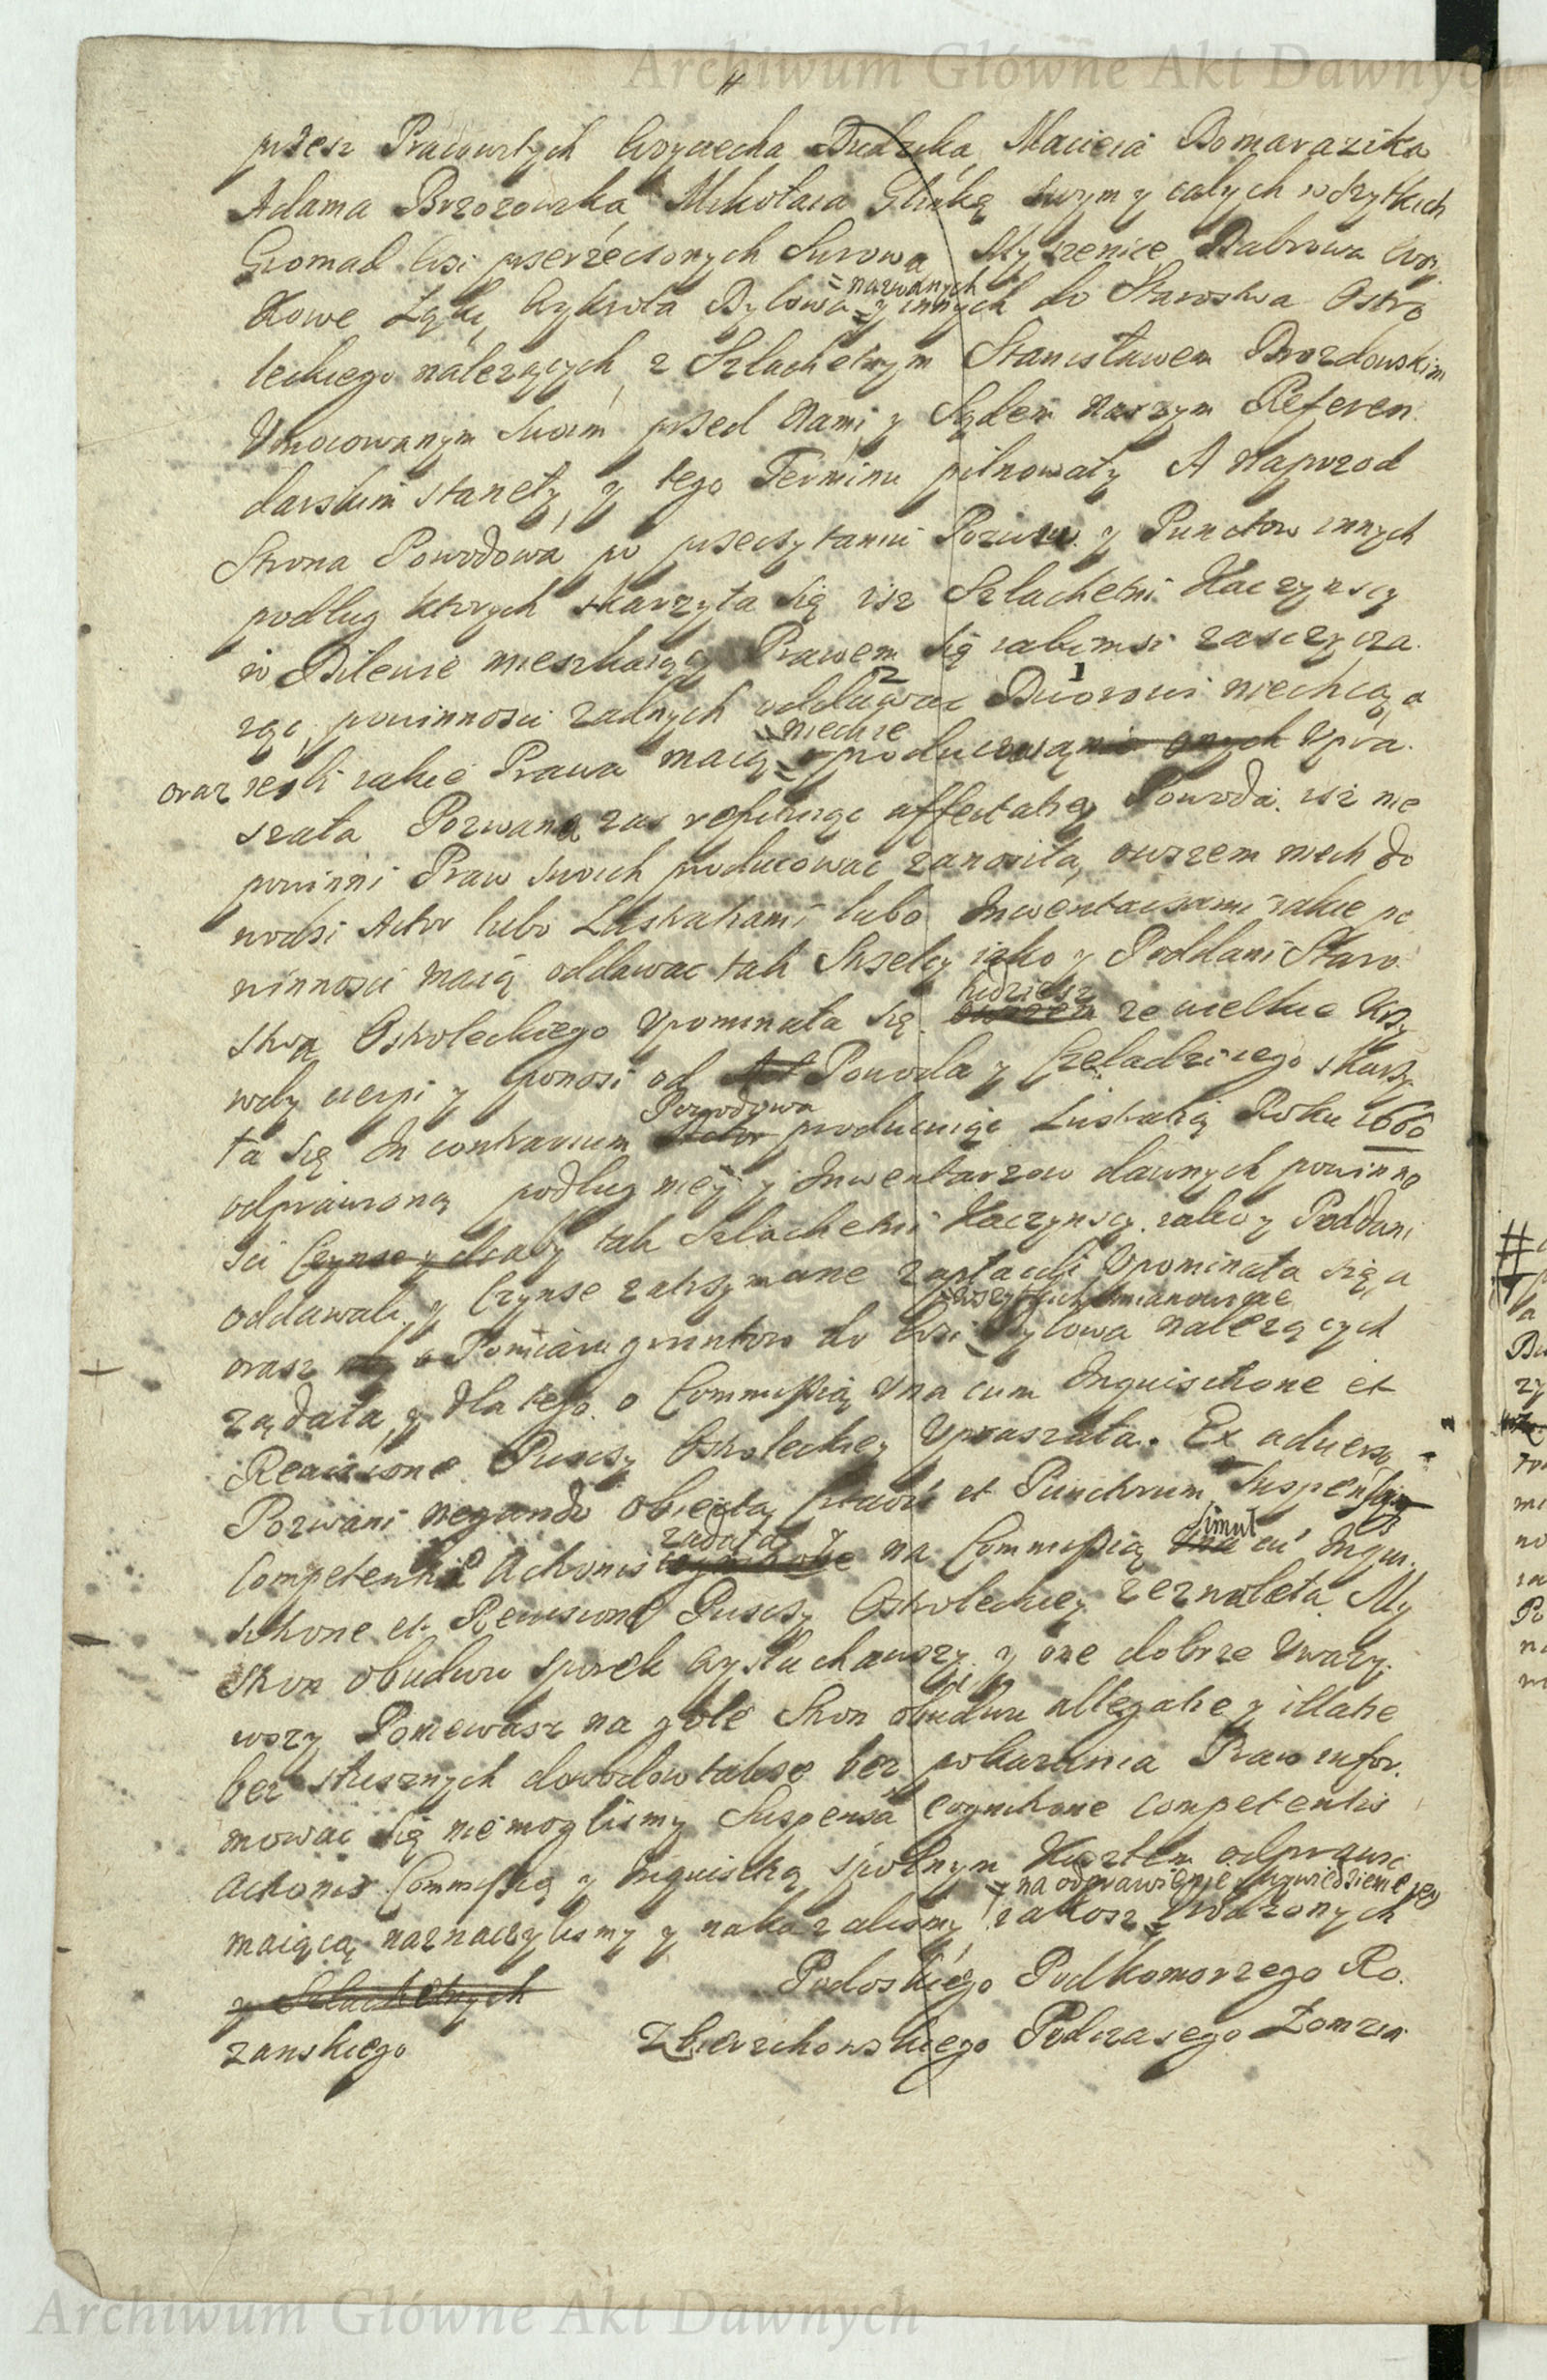 Archiwum Główne Akt Dawnych
przesz Pracowitych Woyciecha Dudzika, Macieia Domarazika
Adama Brzozowzka, Mikołaia Glinkę swym y całych wszytkich
Gromad Wsi przerzeczonych Surowa, Myszenice Dabrowa Woy
Kowe Łąki, Wykrota Dylowa =nazwanych= y innych do Starostwa Ostro
leckiego nalezących, z Szlachetnym Stanisławem Drozdowskim
Umocowanym swoim przed Nami y Sądem Naszym Referen
darskim stanęły, y tego Terminu pilnowały. A naprzod
Strona Powodowa po przeczytaniu Pozwu y Punctow innych
podług ktorych skarzyła się isz Szlachetni Kaczynscy
w Dilewie mieszkaiący Prawem się iakimsi zasczycza
iąc, powinnosci zadnych oddawac Dworowi niechcą, a
oraz iesli iakie Prawa maią =niechże= producowania onych Upra
szała Pozwana zas refutuiąc affectatię Powoda, isz nie
powinni Praw swoich producowac zanosiła, owszem niech do
wodzi Actor lubo Lustratiami lubo Inwentarzami iakie po
winnosci maią oddawac tak Strzelcy iako y Poddani Staro
stwa Ostroleckiego Upominała się. tudziesz owszem ze wielkie Krzy
wdy cierpi y ponosi od Act Powoda y Czeladzi iego skarzy
ła się In contrarium Powodowa Actor producuiąc Lustratią Roku 1660
odprawioną podług niey y Inwentarzow dawnych powinno
sci Czynsz y aby tak Szlachetni Kaczynscy iako y Poddani
oddawali, y Czynsze zatrzymane zapłacili, Upominała się, a
orasz o Pomiarę gruntow do Wsi =wszytkich mianowicie= Dylowa nalezących
ządała, y dla tego o Commissią una cum Inquisitione et
Revisione Puszczy Ostroleckiey Upraszała. Ex adverso
Pozwani negando obiecta, et Punctorum, Suspensa
Competentia Actionis ządała y na Commissią simul una cu Inqui
sitione et Revisione Puszczy Ostroleckiey zezwoleła. My
stron obudwu sporek wysłuchawszy y one dobrze Uwazy
wszy Poniewasz na gołe stron obudwu allegatie y illatie
bez słusznych dowodow takze bez pokazania Praw infor
mowac się niemoglismy Suspensa cognitione competentis
actionis Commissią y Inquisitią spolnym Kosztem odprawic
maiącą naznaczylismy y nakazalismy, iakosz =na odprawienie y zwiedzienie iey= Urodzonych
y Szlachetnych Podoskiego Podkomorzego Ro
zanskiego Zbierzchowskiego Podczasego Łomzin
Archiwum Główne Akt Dawnych